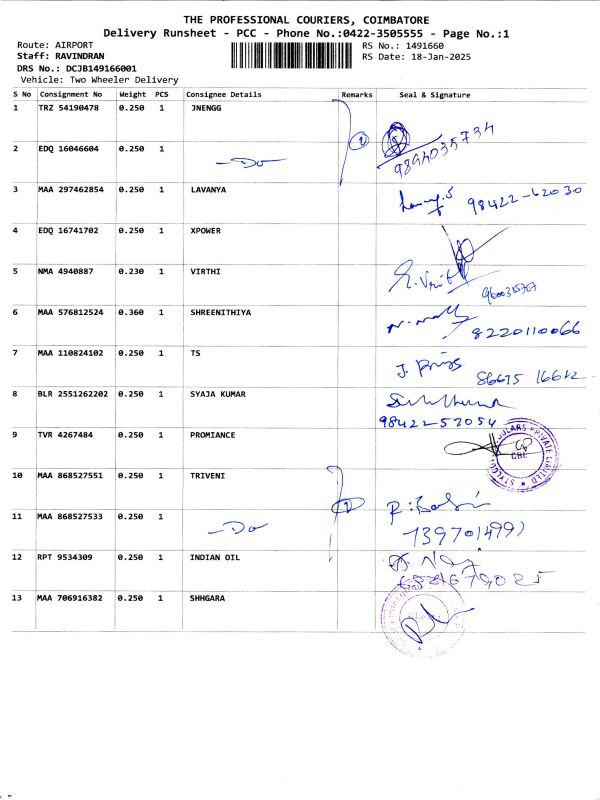 THE PROFESSIONAL COURIERS, COIMBATORE
Delivery Runsheet - PCC - Phone No.:0422-3505555 - Page No.:1
Route: AIRPORT RS No.: 1491660
Staff: RAVINDRAN RS Date: 18-Jan-2025
DRS No.: DCJB149166001
Vehicle: Two Wheeler Delivery
S No Consignment No Weight PCS Consignee Details Remarks Seal & Signature
1 TRZ 54190478 0.250 1 JNENGG
9894035734
2 EDQ 16046604 0.250 1 -Do
3 MAA 297462854 0.250 1 LAVANYA 98422-62030
4 EDQ 16741702 0.250 1 XPOWER
5 NMA 4940887 0.230 1 VIRTHI
6 MAA 576812524 0.360 1 SHREENITHIYA 8220110066
7 MAA 110824102 0.250 1 TS
8 BLR 2551262202 0.250 1 SYAJA KUMAR
98422-52054
9 TVR 4267484 0.250 1 PROMIANCE
CBE
10 MAA 868527551 0.250 1 TRIVENI
11 MAA 868527533 0.250 1 -Do
12 RPT 9534309 0.250 1 INDIAN OIL
13 MAA 706916382 0.250 1 SHHGARA